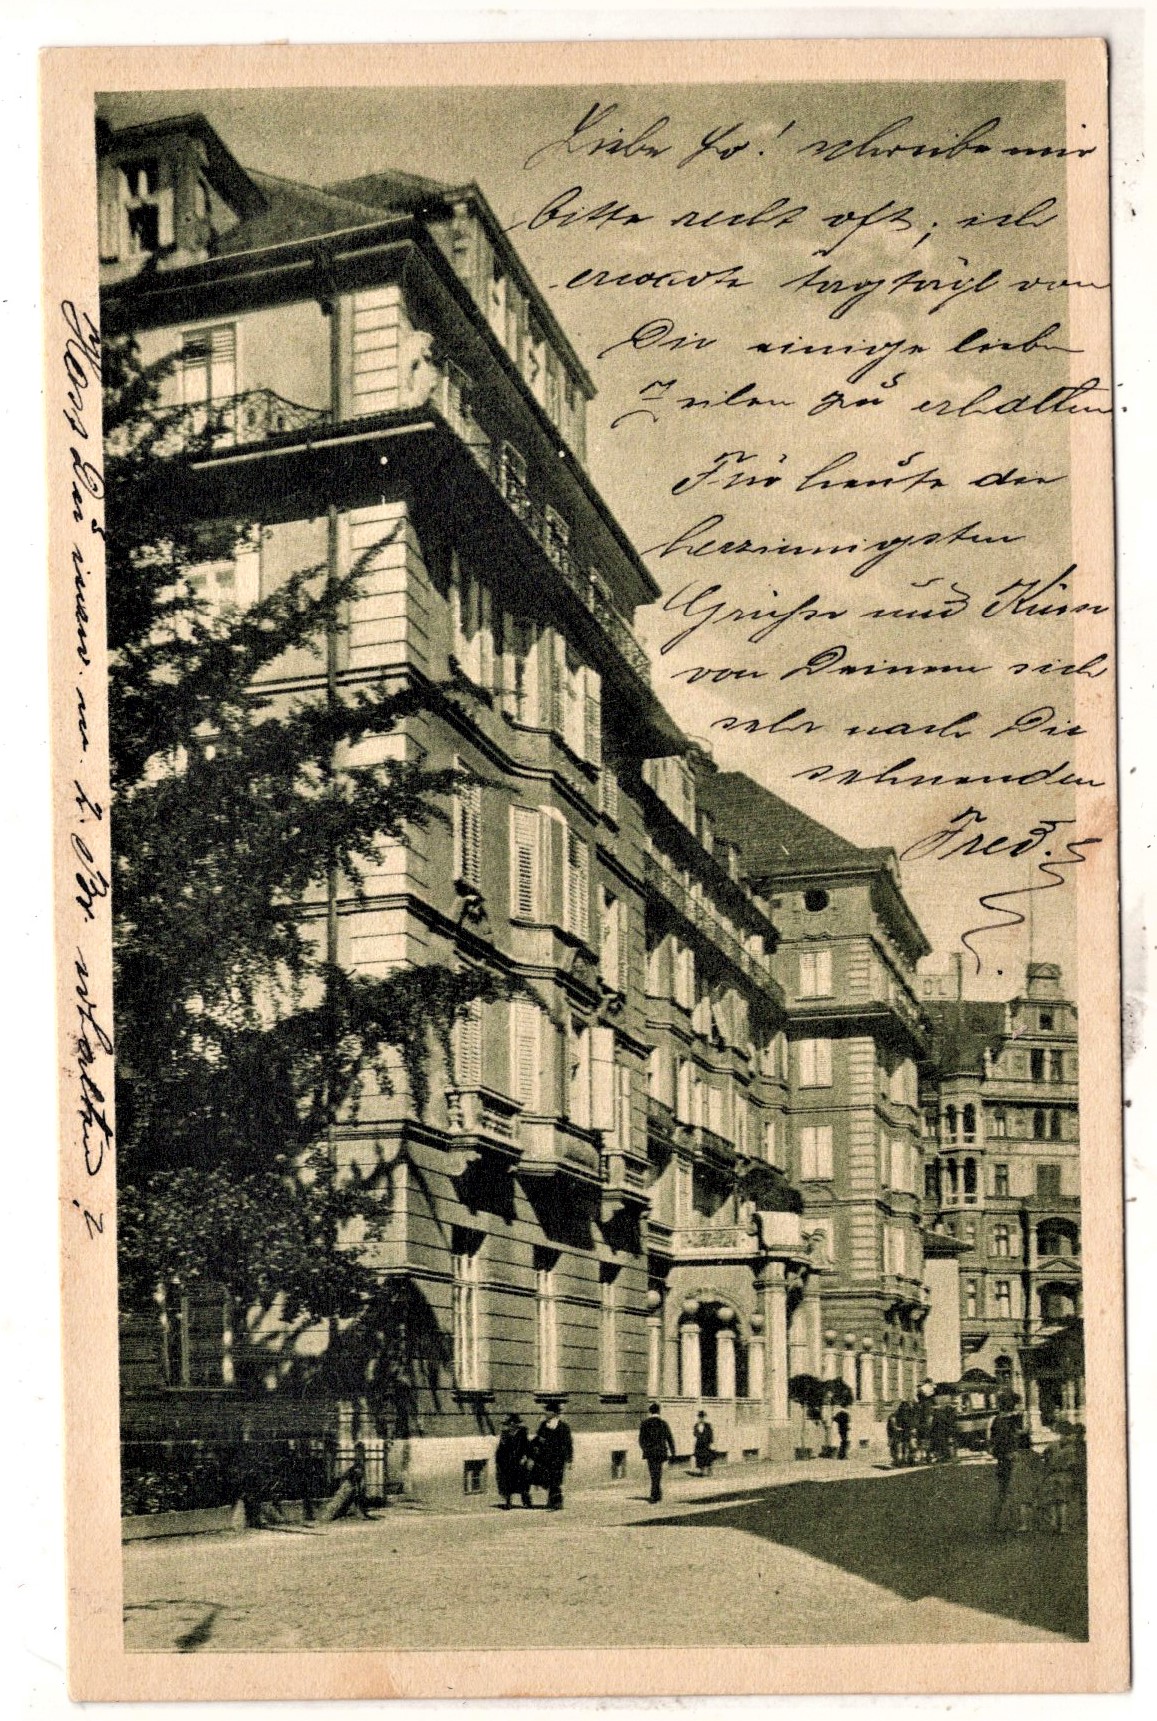 Liebe Lo! schreibe mir
bitte recht oft; ich
erwarte tagtägl von
Dir einige liebe
Zeilen zu erhalten.
Für heute die
herzinnigsten
Grüße und Küsse
von Deinem sich
sehr nach Dir
sehnenden
Fred.
Hast Du mein. 2. Br. erhalten?